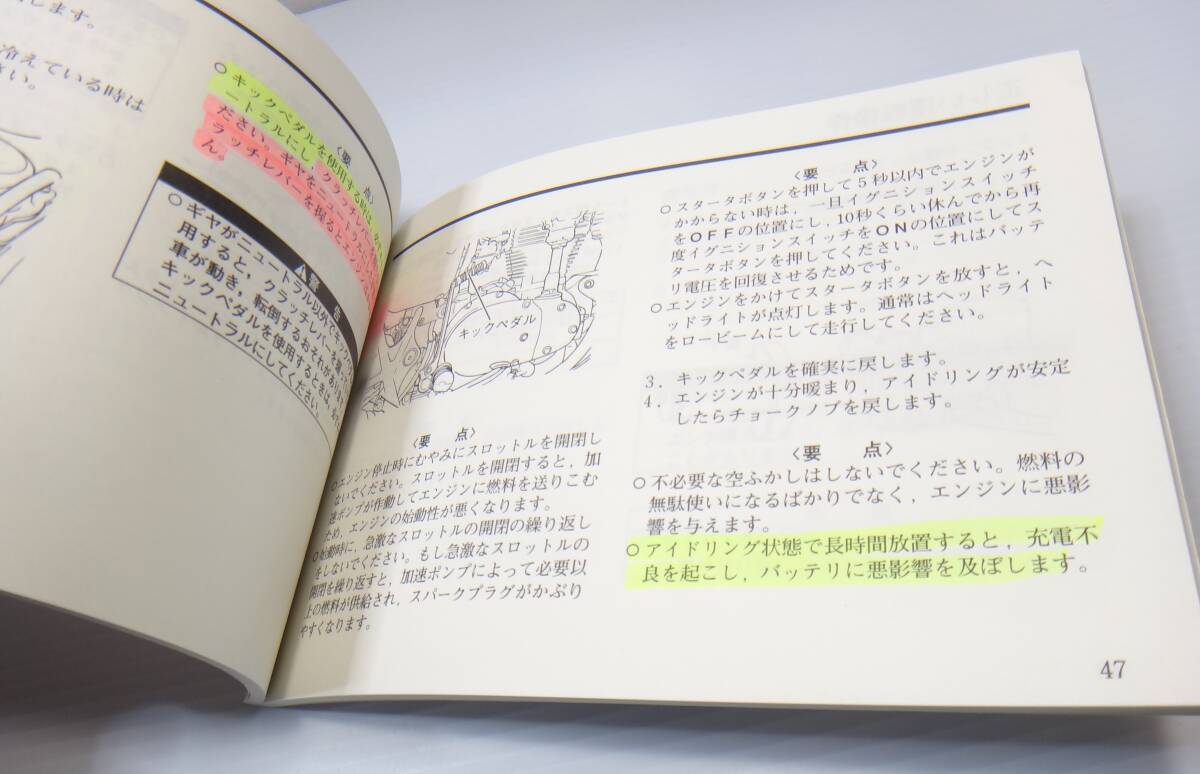 します。
冷えている時は
さい。
〈要 点〉
○キックペダルを使用する時は
ートラルにし、クラッチ
ださい。ギヤをニュートラル
ラッチレバーを握るとエンジン
ん。
警 告
○ギヤがニュートラル以外でキック
用すると、クラッチレバーを
車が動き、転倒するおそれがあ
キックペダルを使用するときは、
ニュートラルにしてください。
キックペダル
〈要 点〉
○エンジン停止時にむやみにスロットルを開閉し
ないでください。スロットルを開閉すると、加
速ポンプが作動してエンジンに燃料を送りこむ
ため、エンジンの始動性が悪くなります。
○始動時に、急激なスロットルの開閉の繰り返し
をしないでください。もし急激なスロットルの
開閉を繰り返すと、加速ポンプによって必要以
上の燃料が供給され、スパークプラグがかぶり
やすくなります。
〈要 点〉
○スタータボタンを押して5秒以内でエンジンが
かからない時は、一旦イグニションスイッチ
をOFFの位置にし、10秒くらい休んでから再
度イグニションスイッチをONの位置にしてス
タータボタンを押してください。これはバッテ
リ電圧を回復させるためです。
○エンジンをかけてスタータボタンを放すと、ヘ
ッドライトが点灯します。通常はヘッドライト
をロービームにして走行してください。
3. キックペダルを確実に戻します。
4. エンジンが十分暖まり、アイドリングが安定
したらチョークノブを戻します。
〈要 点〉
○不必要な空ふかしはしないでください。燃料の
無駄使いになるばかりでなく、エンジンに悪影
響を与えます。
○アイドリング状態で長時間放置すると、充電不
良を起こし、バッテリに悪影響を及ぼします。
47